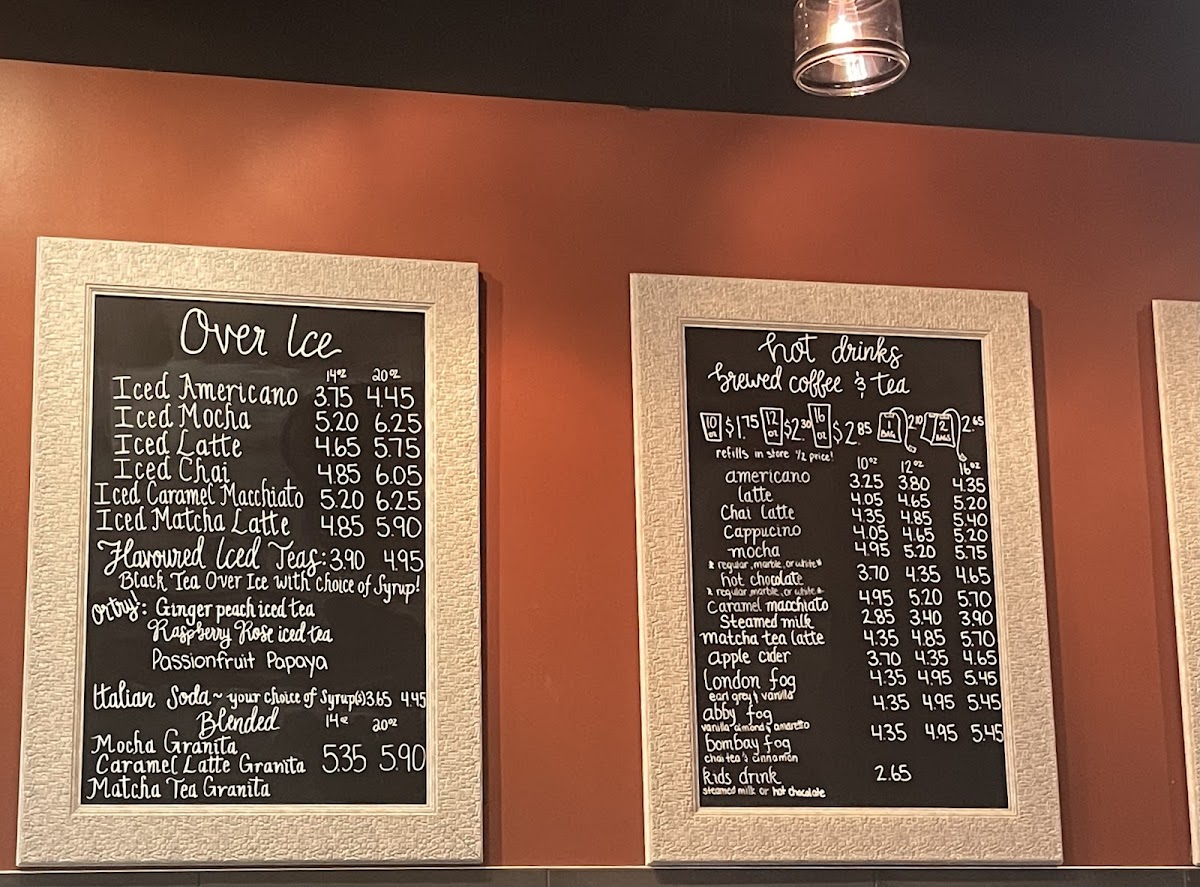 Over Ice
14oz 20oz
Iced Americano 3.75 4.45
Iced Mocha 5.20 6.25
Iced Latte 4.65 5.75
Iced Chai 4.85 6.05
Iced Caramel Macchiato 5.20 6.25
Iced Matcha Latte 4.85 5.90
Flavoured Iced Teas: 3.90 4.95
Black Tea Over Ice with choice of Syrup!
Or try!: Ginger peach iced tea
Raspberry Rose iced tea
Passionfruit Papaya
Italian Soda ~ your choice of Syrup(s) 3.65 4.45
Blended 14oz 20oz
Mocha Granita
Caramel Latte Granita 5.35 5.90
Matcha Tea Granita
hot drinks
brewed coffee & tea
10 oz $1.75 12 oz $2.30 16 oz $2.85 1 BAG 2.10 2 BAGS 2.65
refills in store 1/2 price!
10oz 12oz 16oz
americano 3.25 3.80 4.35
latte 4.05 4.65 5.20
Chai latte 4.35 4.85 5.40
Cappucino 4.05 4.65 5.20
mocha 4.95 5.20 5.75
* regular, marble, or white *
hot chocolate 3.70 4.35 4.65
* regular, marble, or white *
Caramel macchiato 4.95 5.20 5.70
Steamed milk 2.85 3.40 3.90
matcha tea latte 4.35 4.85 5.70
apple cider 3.70 4.35 4.65
London fog 4.35 4.95 5.45
earl grey & vanilla
abby fog 4.35 4.95 5.45
vanilla almond & amaretto
bombay fog 4.35 4.95 5.45
chai tea & cinnamon
kids drink 2.65
steamed milk or hot chocolate